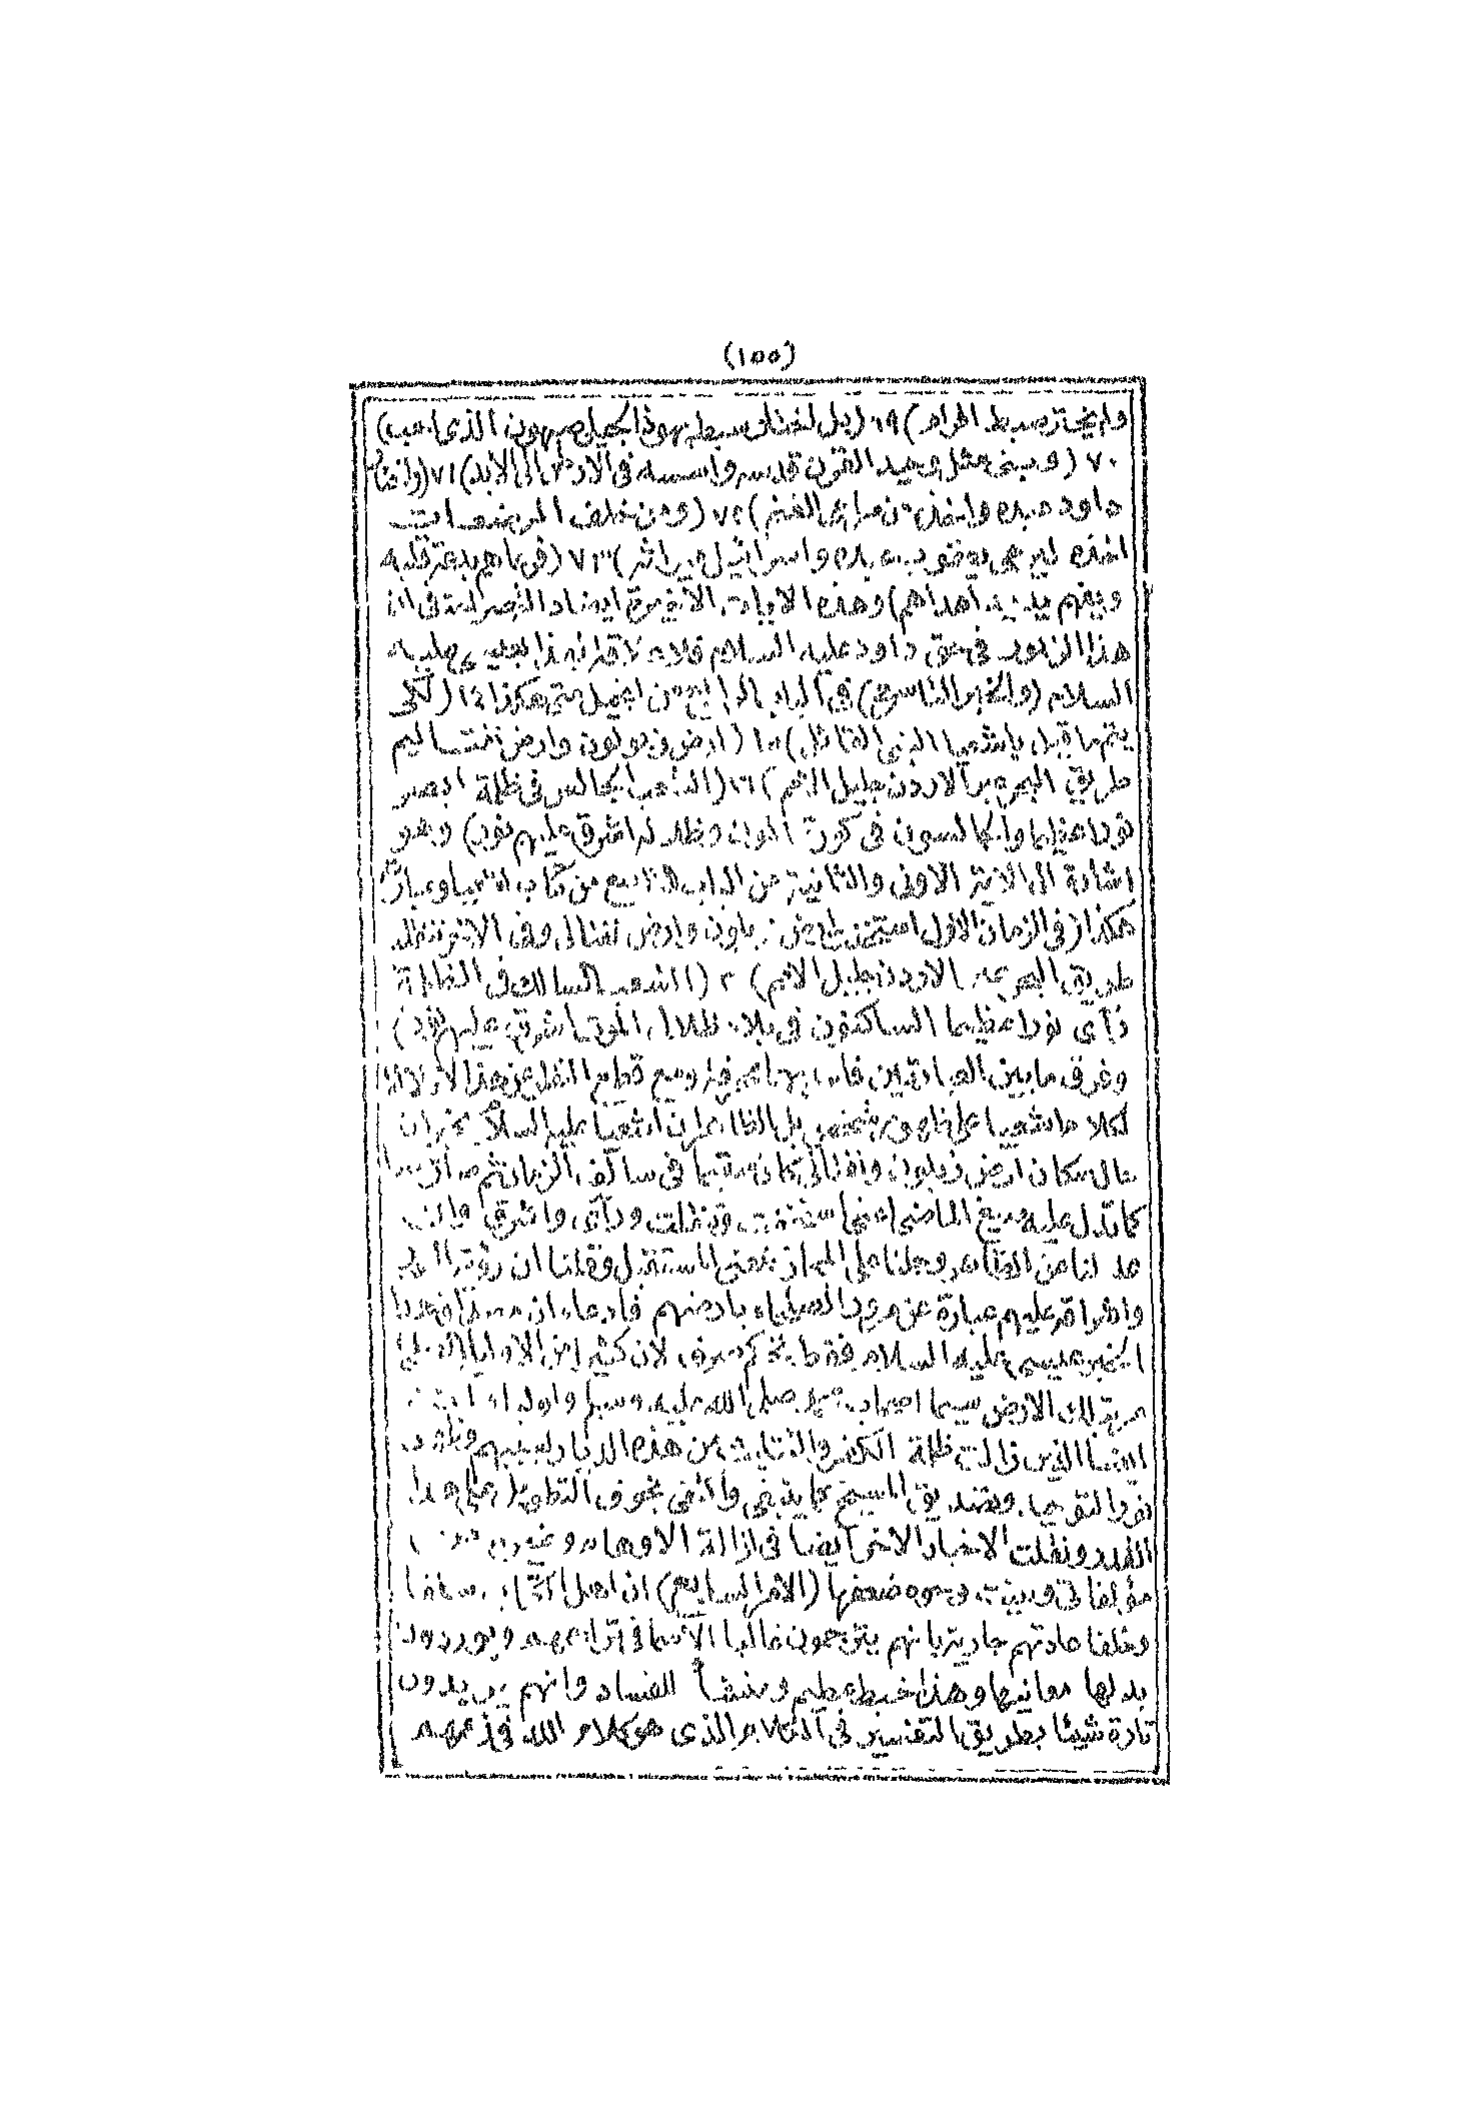 (١٥٥)
ولم يختر سبط افرام) ٦٩ (بل اختار سبط يهوذا لجبل صهيون الذي احب)
٧٠ (وبنى مثل وحيد القرن قدسه واسسه في الارض الى الابد) ٧١ (واختار
داود عبده واخذه من مراعى الغنم) ٧٢ (ومن خلف المرضعات
اخذه ليرعى يعقوب عبده واسرائيل ميراثه) ٧٣ (فرعاهم بدعة قلبه
وبفهم يديه اهداهم) وهذه الآيات الاخيرة ايضا دالة صراحة في ان
هذا الزبور في حق داود عليه السلام فلا علاقة لهذا بعيسى عليه
السلام (والخبر التاسع) في الباب الرابع من انجيل متى هكذا ١٤ (لكى
يتم ما قيل باشعيا النبي القائل) ١٥ (ارض زبولون وارض نفتاليم
طريق البحر عبر الاردن جليل الامم) ١٦ (الشعب الجالس في ظلمة ابصر
نورا عظيما والجالسون في كورة الموت وظلاله اشرق عليهم نور) وهو
اشارة الى الآية الاولى والثانية من الباب التاسع من كتاب اشعيا وعبارته
هكذا (في الزمان الاول استخفت ارض زبلون وارض نفتالى وفي الآخر تثقلت
طريق البحر عبر الاردن جليل الامم) ٢ (الشعب السالك في الظلمة
رأى نورا عظيما الساكنون في بلاد ظلال الموت اشرق عليهم نور)
وفرق ما بين العبارتين فاحدهما محرفة ومع قطع النظر عن هذا لا دلالة
لكلام اشعيا على ظهور شخص بل الظاهر ان اشعيا عليه السلام يخبر ان
حال سكان ارض زبلون ونفتالى كان سقيما في سالف الزمان ثم صار حسنا
كما تدل عليه صيغ الماضي اعنى استخفت وتثقلت ورأى واشرق وان
عدلنا عن الظاهر وحملنا على المجاز بمعنى المستقبل وقلنا ان رؤية النور
واشراقه عليهم عبارة عن مرور الصلحاء بارضهم فادعاء ان مصداق هذا
الخبر عيسى عليه السلام فقط تحكم صرف لان كثيرا من الاولياء والصلحاء
مر بتلك الارض سيما اصحاب محمد صلى الله عليه وسلم واولياء امته
ايضا الذين زالت ظلمة الكفر والتثليث من هذه الديار بسببهم وظهر
نور التوحيد وتصديق المسيح كما ينبغى واكتفى بخوف التطويل على هذا
القدر ونقلت الاخبار الاخر ايضا في ازالة الاوهام وغيره من
مؤلفاتى وبينت وجوه ضعفها (الامر السابع) ان اهل الكتاب سلفا
وخلفا عادتهم جارية بانهم يترجمون غالبا الاسماء في تراجمهم ويوردون
بدلها معانيها وهذا خبط عظيم ومنشأ للفساد وانهم يزيدون
تارة شيئا بطريق التفسير في الكلام الذي هو كلام الله في زعمهم